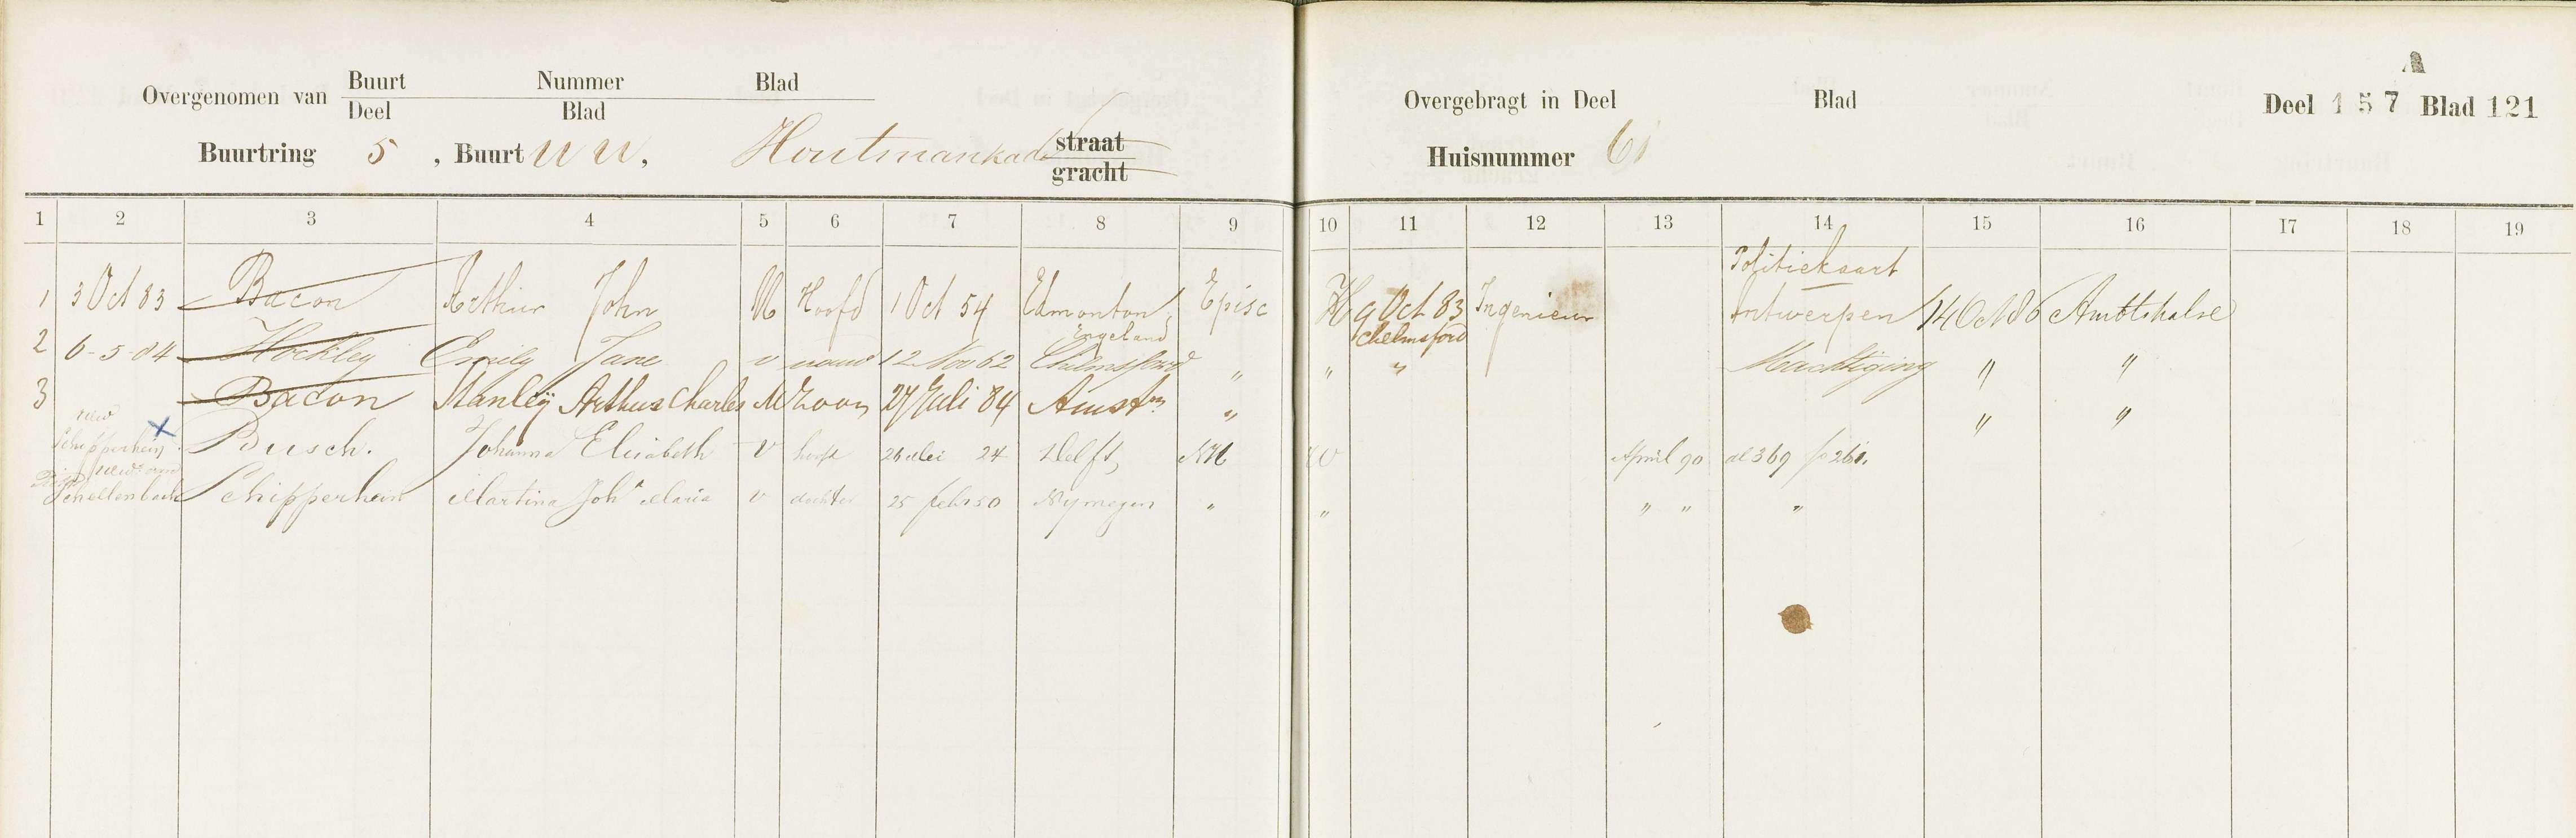 Overgenomen van Buurt Nummer Blad
Deel Blad
Buurtring 5, Buurt UU, Houtmankade straat
gracht
Overgebragt in Deel Blad
A
Deel 157 Blad 121
Huisnummer 61
1 2 3 4 5 6 7 8 9 10 11 12 13 14 15 16 17 18 19
Politiekaart
1 3 Oct 83 Bacon Arthur John M Hoofd 1 Oct 54 Edmonton Episc H 9 Oct 83 Ingenieur Antwerpen 14 Oct 86
Engeland Chelmsford
2 6-5-84 Hockley Emily Jane v vrouw 12 Nov 62 Chelmsford " " " Machtiging " "
3 Bacon Stanleÿ Arthur Charles M Zoon 27 Juli 84 Amstm " " "
wed
Schipperheijn x Busch. Johanna Elisabeth v hoofd 26 Mei 24 Delft NH W April 90 dl 369 fo 261.
Schellenbach Schipperheijn Martina Joha Maria v dochter 25 febr 50 Nymegen " " " " "